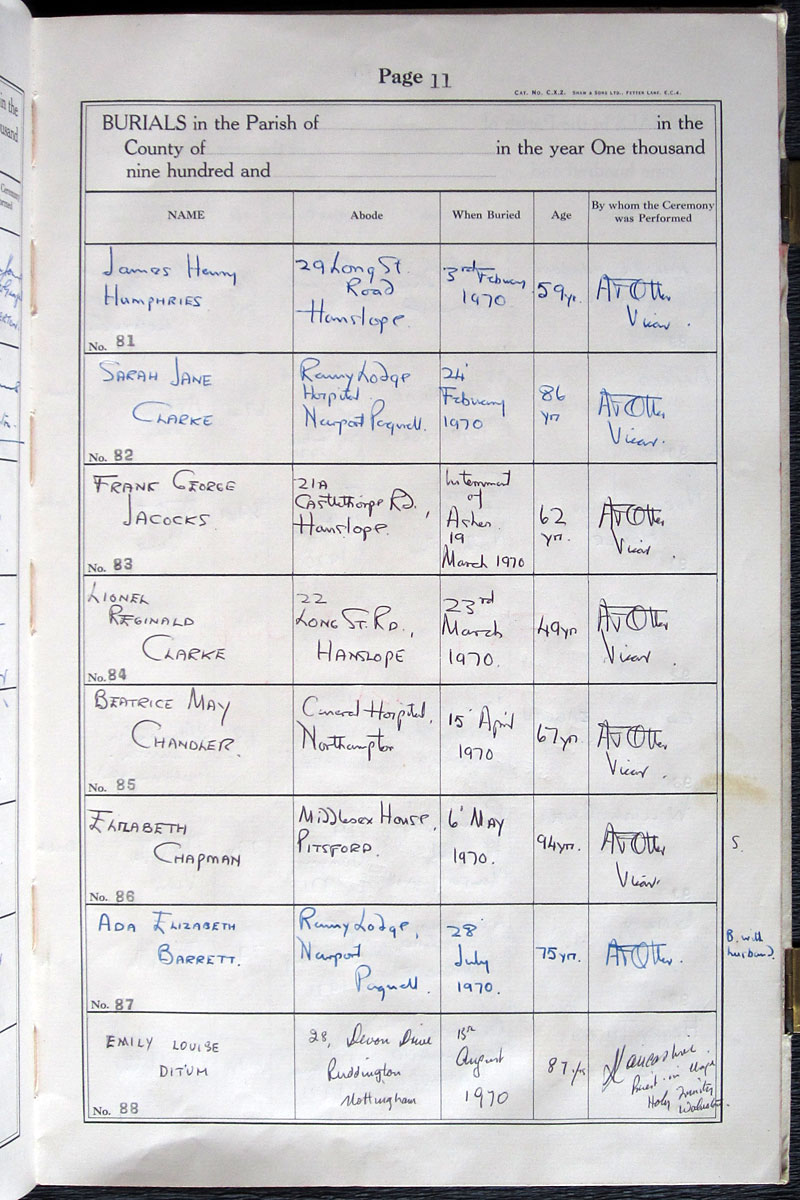 Page 11
CAT. No. C.X.2. SHAW & SONS LTD., FETTER LANE, E.C.4.
BURIALS in the Parish of in the
County of in the year One thousand
nine hundred and
NAME Abode When Buried Age By whom the Ceremony
was Performed
James Henry
HUMPHRIES
No. 81
29 Long St.
Road
Hanslope
3rd February
1970
59 yr.
Vicar.
SARAH JANE
CLARKE
No. 82
Renny Lodge
Hospital
Newport Pagnell.
24
February
1970
86
yr
Vicar.
FRANK GEORGE
JACOCKS
No. 83
21A
Castlethorpe Rd.,
Hanslope
Internment
of
Ashes
19
March 1970
62
yr.
Vicar.
LIONEL
REGINALD
CLARKE
No. 84
22
LONG ST. RD.,
HANSLOPE
23rd
March
1970.
49 yr
Vicar.
BEATRICE MAY
CHANDLER.
No. 85
General Hospital,
Northampton
15 April
1970
67 yr.
Vicar.
ELIZABETH
CHAPMAN
No. 86
Middlesex House,
PITSFORD.
6 MAY
1970.
94 yr.
Vicar.
S.
ADA ELIZABETH
BARRETT.
No. 87
Renny Lodge,
Newport
Pagnell.
28
July
1970.
75 yr.
B. with
husband.
EMILY LOUISE
DITUM
No. 88
28, Devon Drive
Ruddington
Nottingham
13th
August
1970
87 yrs
Holy Trinity